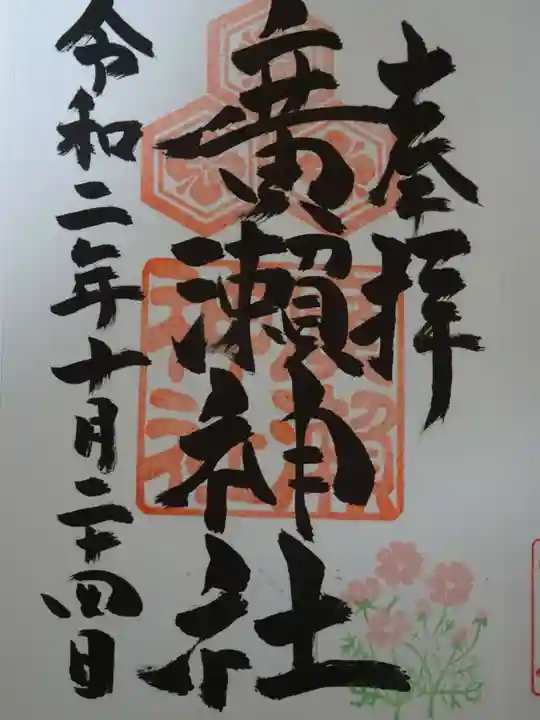 奉拝
廣瀬神社
令和二年十月二十四日
廣瀬
神社